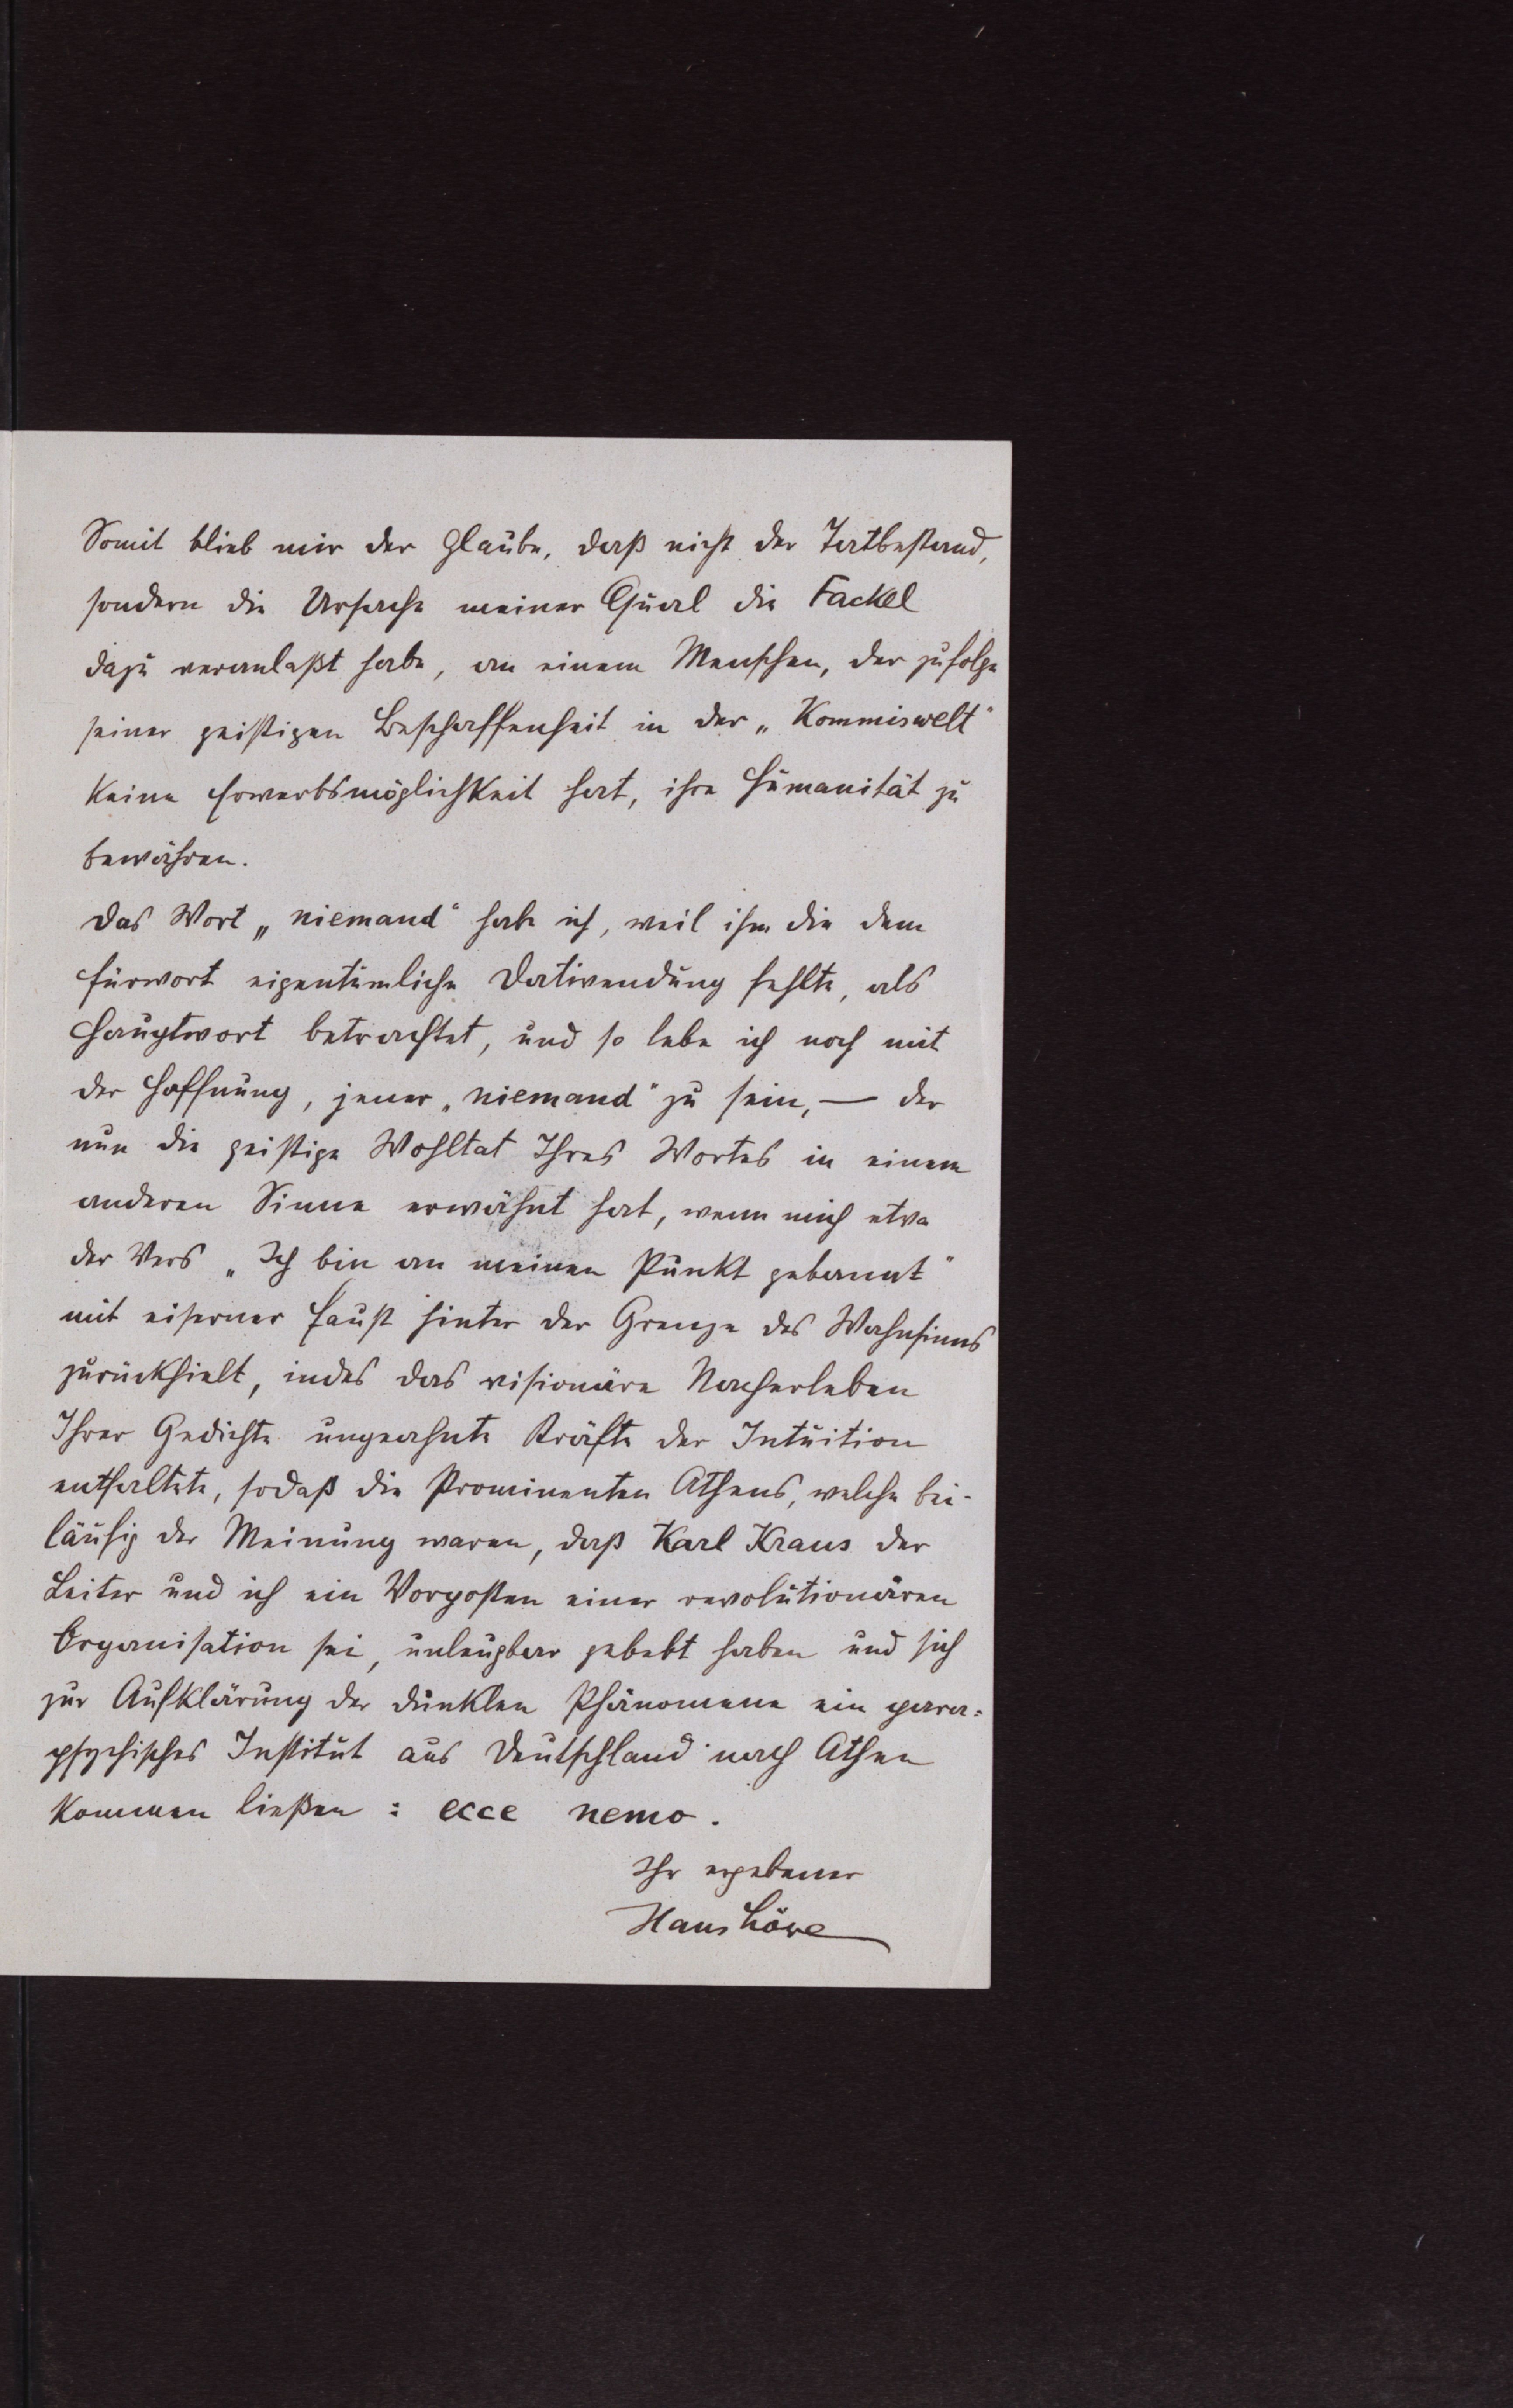 Somit blieb mir der Glaube, daß nicht der Tatbestand,
sondern die Ursache meiner Qual die Fackel
dazu veranlaßt habe, an einem Menschen, der zufolge
seiner geistigen Beschaffenheit in der „Kommiswelt“
keine Erwerbsmöglichkeit hat, ihre Humanität zu
bewähren.
Das Wort „niemand“ habe ich, weil ihm die dem
Fürwort eigentümliche Dativendung fehlte, als
Hauptwort betrachtet, und so lebe ich noch mit
der Hoffnung, jener „niemand“ zu sein, — der
nun die geistige Wohltat Ihres Wortes in einem
anderen Sinne erwähnt hat, wenn mich etwa
der Vers „Ich bin an meinen Punkt gebannt“
mit eiserner Faust hinter der Grenze des Wahnsinns
zurückhielt, indes das visionäre Nacherleben
Ihrer Gedichte ungeahnte Kräfte der Intuition
entfaltete, sodaß die Prominenten Athens, welche bei-
läufig der Meinung waren, daß Karl Kraus der
Leiter und ich ein Vorposten einer revolutionären
Organisation sei, unleugbar gebebt haben und sich
zur Aufklärung der dunklen Phänomene ein para-
psychisches Institut aus Deutschland nach Athen
kommen ließen: ecce nemo.
Ihr ergebener
Hans Löwe